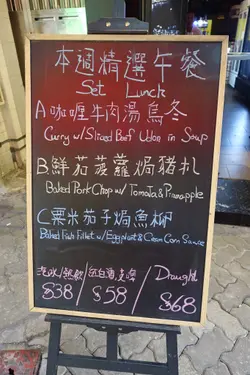 本週精選午餐
Set Lunch
A 咖喱牛肉湯烏冬
Curry w/ Sliced Beef Udon in Soup
B. 鮮茄菠蘿焗豬扒
Baked Pork Chop w/ Tomato & Pineapple
C 粟米茄子焗魚柳
Baked Fish Fillet w/ Eggplant & Cream Corn Sauce
汽水/ 紅白酒 Draught
$38 / $58 / $68